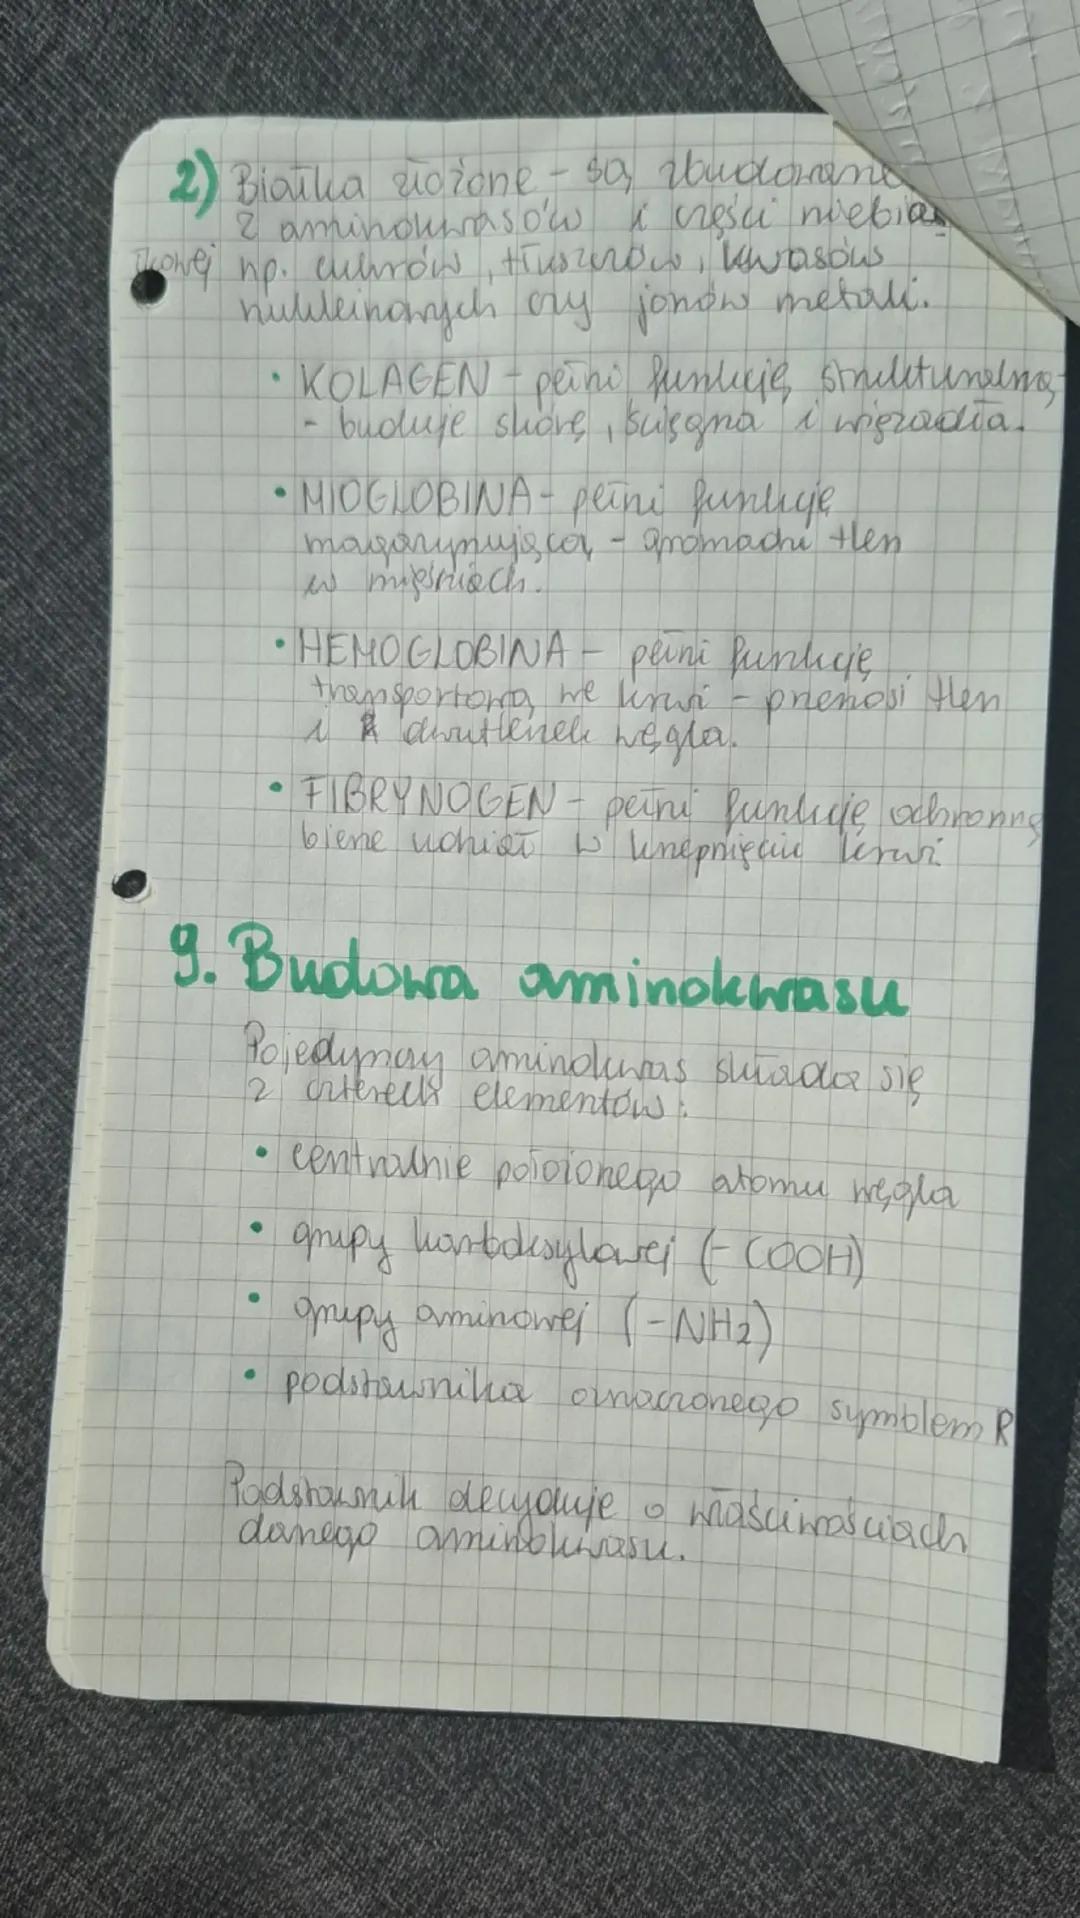 2) Białka złożone - są zbudowane
z aminokwasów i części niebiał
kowej np. cukrów, tłuszczów, kwasów
nukleinowych czy jonów metali.
• KOLAGEN - pełni funkcję strukturalną
- buduje skórę, ścięgna i więzadła.
• MIOGLOBINA - pełni funkcję
magazynującą - gromadzi tlen
w mięśniach.
• HEMOGLOBINA - pełni funkcję
transportową we krwi - przenosi tlen
i dwutlenek węgla.
• FIBRYNOGEN - pełni funkcję ochronną
bierze udział w krzepnięciu krwi
9. Budowa aminokwasu
Pojedynczy aminokwas składa się
z czterech elementów:
• centralnie położonego atomu węgla
• grupy karboksylowej (-COOH)
• grupy aminowej (-NH2)
• podstawnika oznaczonego symblem R
Podstawnik decyduje o właściwościach
danego aminokwasu.